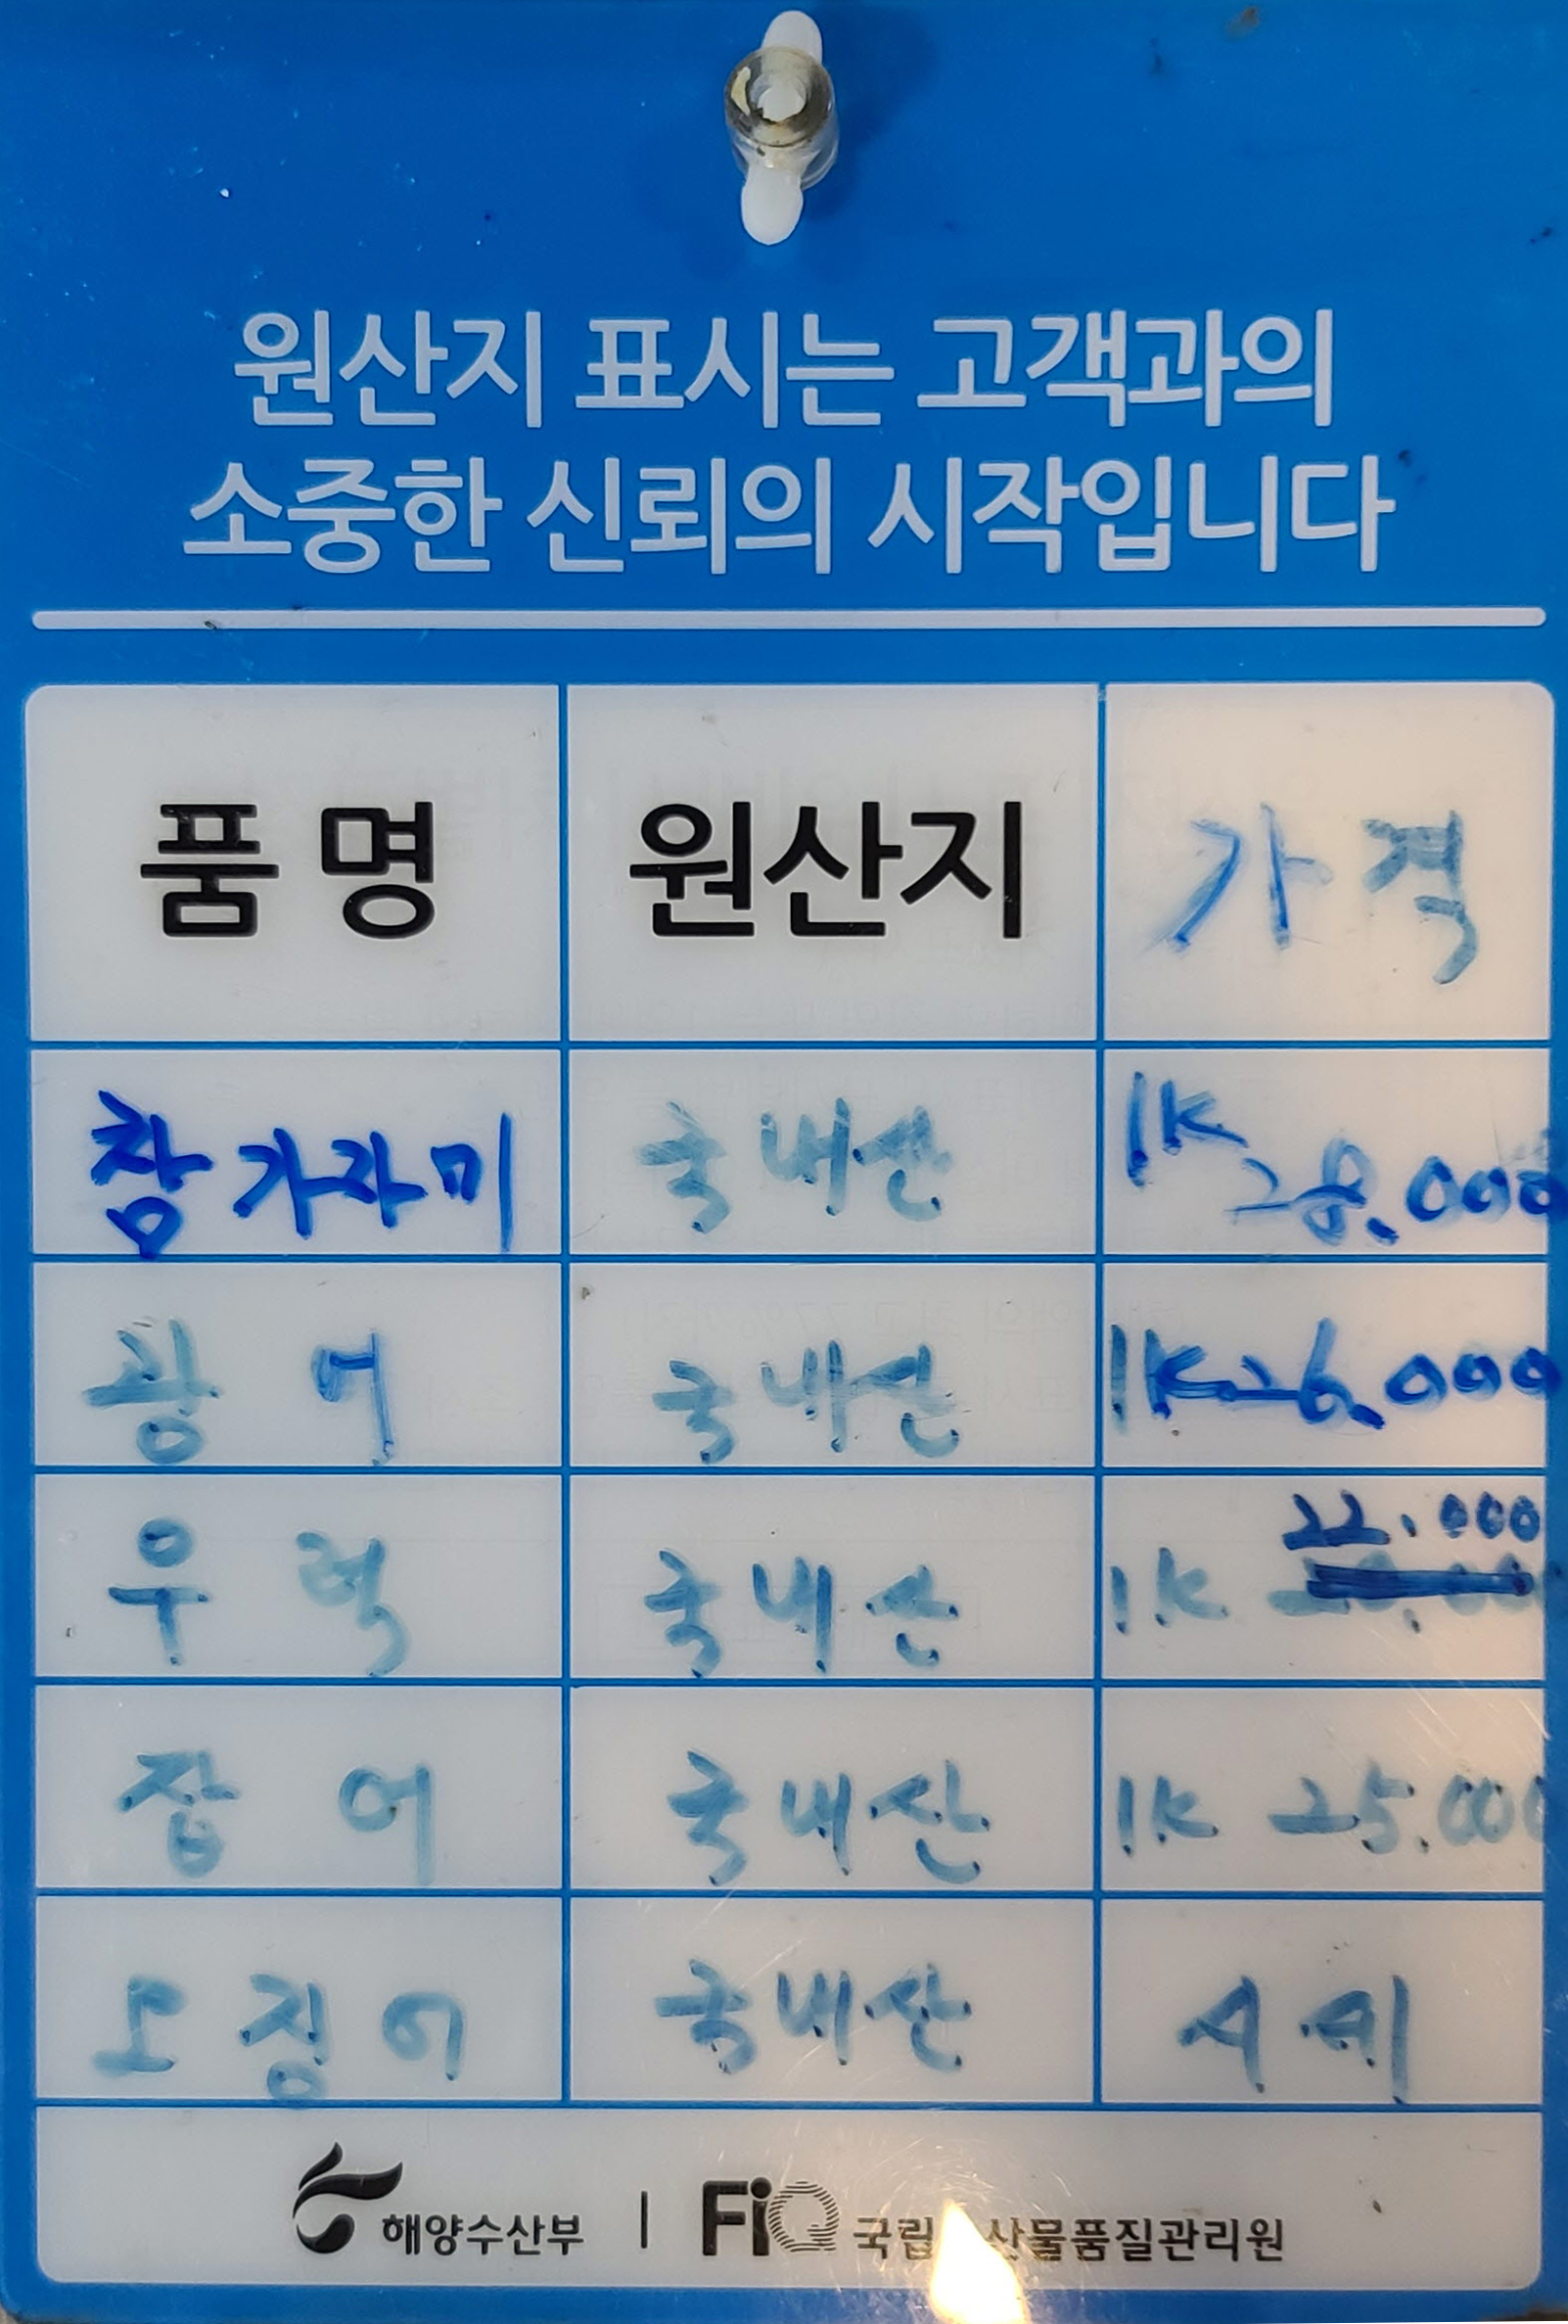 원산지 표시는 고객과의
소중한 신뢰의 시작입니다
품명 원산지 가격
참가자미 국내산 1K 28.000
광어 국내산 1K 26.000
우럭 국내산 1K 22.000
잡어 국내산 1K 25.000
오징어 국내산 시세
해양수산부 | FiQ 국립수산물품질관리원